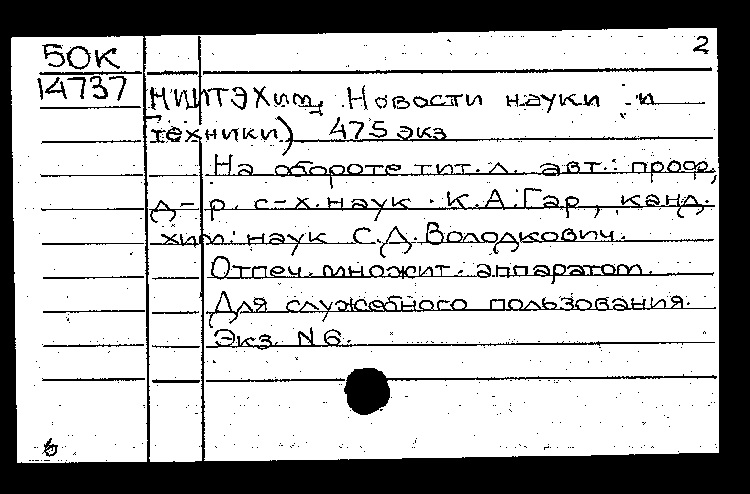 50К
2
14737
НИИТЭХим, Новости науки и
техники) 475 экз
На обороте тит. л. авт.: проф,
д-р. с-х. наук. К.А. Гар, канд.
хим. наук С.Д. Володкович.
Отпеч. множит. аппаратом.
Для служебного пользования.
Экз N 6.